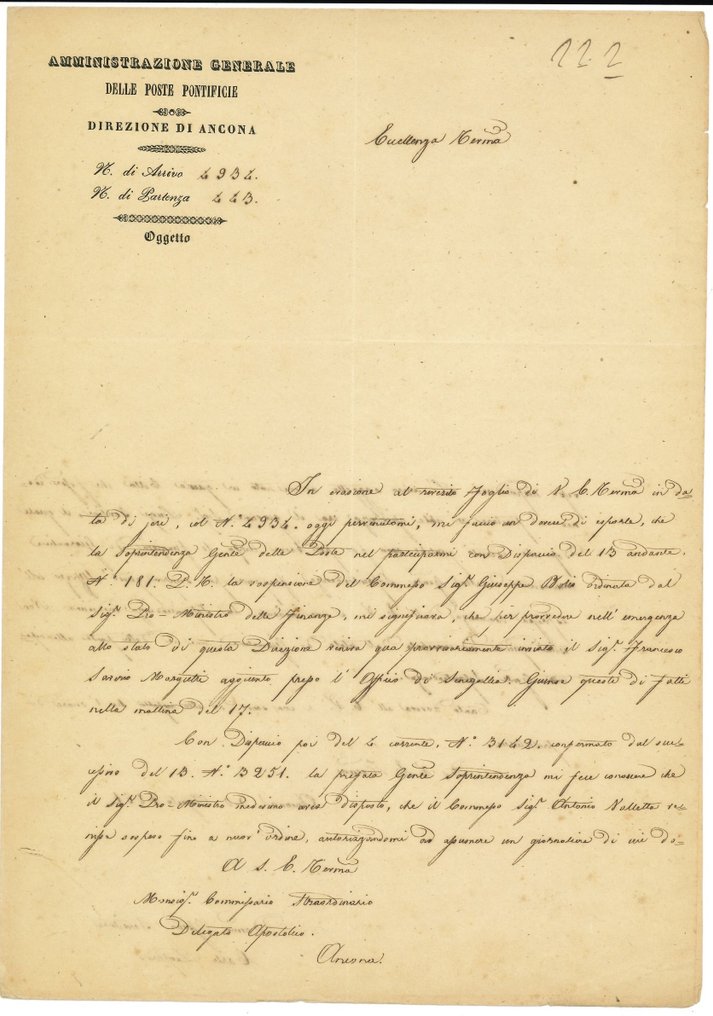 222
AMMINISTRAZIONE GENERALE
DELLE POSTE PONTIFICIE
DIREZIONE DI ANCONA
N. di Arrivo 4934.
N. di Partenza 443.
Oggetto
Eccellenza Rerma
In evasione al riverito Foglio di V. E. Rerma in da-
ta di jeri, col N.º 4934. oggi pervenutomi, mi faccio un dovere di esporle, che
la Soprintendenza Genle delle Poste nel parteciparmi con Dispaccio del 13 andante.
N.º 181. P. R. la sospensione del Commesso Sigr. Giuseppe ordinata dal
Sigr. Pro-Ministro delle Finanze, mi significava, che per provvedere nell' emergenza
allo stato di questa Direzione veniva qua provvisoriamente inviato il Sigr. Francesco
Savino aggiunto presso l' Officio di Sinigallia. Giunse questi di fatti
nella mattina del 17.
Con Dispaccio poi del 4 corrente, N.º 3142. confermato dal suc-
cessivo del 13. N.º 3251. la prefata Genle Soprintendenza mi fece conoscere che
il Sigr. Pro-Ministro medesimo avea disposto, che il Commesso Sigr. Antonio Valletta re-
sospeso fino a nuov' ordine, autorizzandomi ad assumere un giornaliere di cui do-
A S. E. Rerma
Monsigr. Commissario Straordinario
Delegato Apostolico.
Ancona.